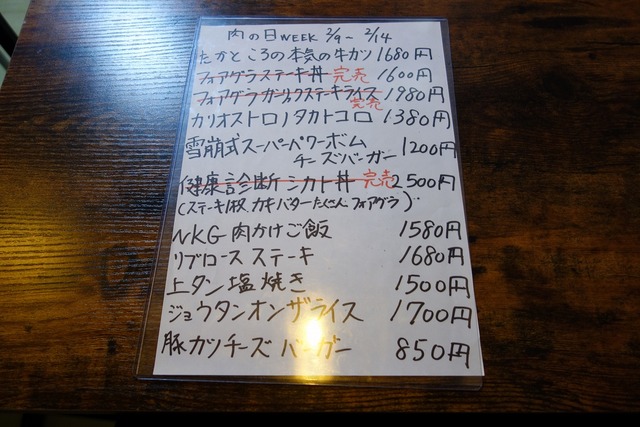 肉の日WEEK 2/9~2/14
たかところの本気の牛カツ 1680円
フォアグラステーキ丼 完売 1600円
フォアグラガーリックステーキライス 完売 1980円
カリオストロノタカトコロ 1380円
雪崩式スーパーパワーボム
チーズバーガー 1200円
健康診断シカト丼 完売 2500円
(ステーキ1枚 カキバターたくさん フォアグラ)
NKG 肉かけご飯 1580円
リブロースステーキ 1680円
上タン塩焼き 1500円
ジョウタンオンザライス 1700円
豚カツチーズバーガー 850円